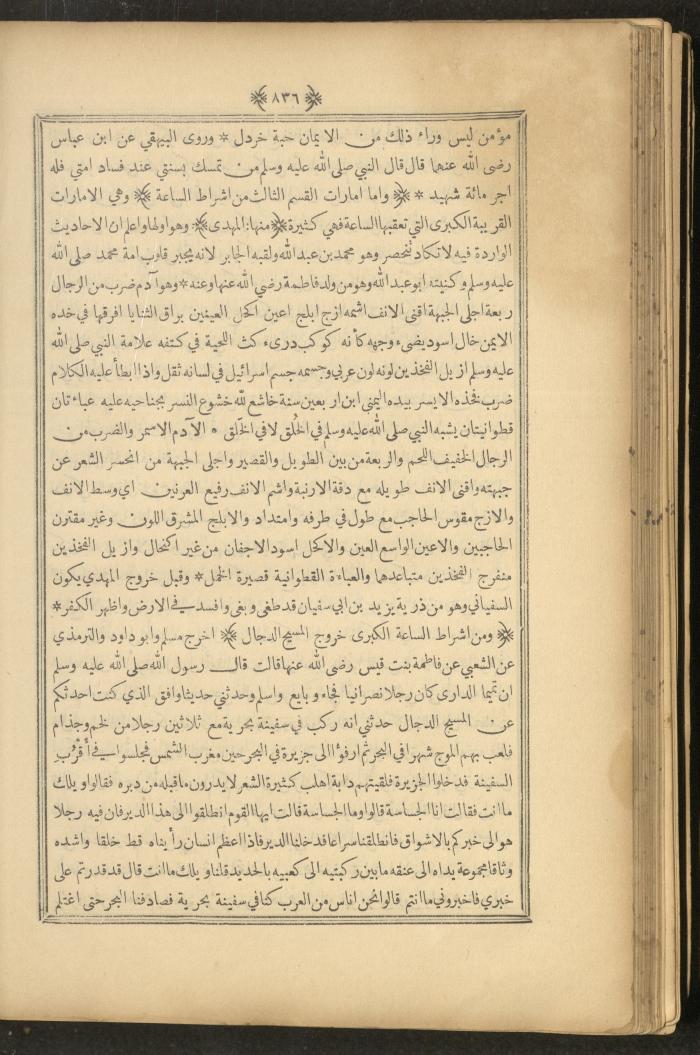 ﴿ ٨٣٦ ﴾
مؤمن ليس وراء ذلك من الايمان حبة خردل * وروى البيهقي عن ابن عباس
رضى الله عنهما قال قال النبي صلى الله عليه وسلم من تمسك بسنتي عند فساد امتي فله
اجر مائة شهيد * ﴿ واما امارات القسم الثالث من اشراط الساعة ﴾ وهي الامارات
القريبة الكبرى التي تعقبها الساعة فهي كثيرة ﴿ منها: المهدى ﴾: وهو اولها واعلم ان الاحاديث
الواردة فيه لاتكاد تنحصر وهو محمد بن عبد الله ولقبه الجابر لانه يجبر قلوب امة محمد صلى الله
عليه وسلم وكنيته ابو عبد الله وهو من ولد فاطمة رضي الله عنها وعنه * وهو آدم ضرب من الرجال
ربعة اجلى الجبهة اقنى الانف اشمه ازج ابلج اعين اكحل العينين براق الثنايا افرقها في خده
الايمن خال اسود يضىء وجهه كأنه كوكب درىء كث اللحية في كتفه علامة النبي صلى الله
عليه وسلم ازيل الفخذين لونه لون عربي وجسمه جسم اسرائيل في لسانه ثقل واذا ابطأ عليه الكلام
ضرب فخذه الايسر بيده اليمنى ابن اربعين سنة خاشع لله خشوع النسر بجناحيه عليه عباءتان
قطوانيتان يشبه النبي صلى الله عليه وسلم في الخُلق لا في الخَلق * الآدم الاسمر والضرب من
الرجال الخفيف اللحم والربعة من بين الطويل والقصير واجلى الجبهة من انحسر الشعر عن
جبهته واقنى الانف طويله مع دقة الارنبة واشم الانف رفيع العرنين اي وسط الانف
والازج مقوس الحاجب مع طول في طرفه وامتداد والابلج المشرق اللون وغير مقترن
الحاجبين والاعين الواسع العين والاكحل اسود الاجفان من غير اكتحال وازيل الفخذين
منفرج الفخذين متباعدهما والعباءة القطوانية قصيرة الخمل * وقبل خروج المهدي يكون
السفياني وهو من ذرية يزيد بن ابي سفيان قد طغى وبغى وافسد في الارض واظهر الكفر *
﴿ ومن اشراط الساعة الكبرى خروج المسيح الدجال ﴾ اخرج مسلم وابو داود والترمذي
عن الشعبي عن فاطمة بنت قيس رضى الله عنها قالت قال رسول الله صلى الله عليه وسلم
ان تميما الدارى كان رجلا نصرانيا فجاء وبايع واسلم وحدثني حديثا وافق الذي كنت احدثكم
عن المسيح الدجال حدثني انه ركب في سفينة بحرية مع ثلاثين رجلا من لخم وجذام
فلعب بهم الموج شهرا في البحر ثم ارفؤا الى جزيرة في البحر حين مغرب الشمس فجلسوا في أَقْرُبِ
السفينة فدخلوا الجزيرة فلقيتهم دابة اهلب كثيرة الشعر لايدرون ماقبله من دبره فقالوا ويلك
ما انت فقالت انا الجساسة قالوا وما الجساسة قالت ايها القوم انطلقوا الى هذا الدير فان فيه رجلا
هو الى خبركم بالاشواق فانطلقنا سراعا فدخلنا الدير فاذا اعظم انسان رأيناه قط خلقا واشده
وثاقا مجموعة يداه الى عنقه مابين ركبتيه الى كعبيه بالحديد قلنا ويلك ما انت قال قد قدرتم على
خبري فاخبروني ما انتم قالوا نحن اناس من العرب كنا في سفينة بحرية فصادفنا البحر حتى اغتلم